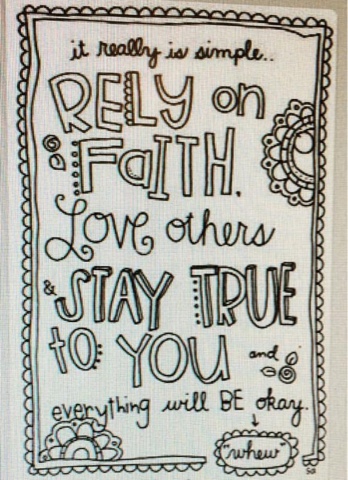 it really is simple..
RELY on
FaITH.
Love others
& STAY TRUE
to: YOU and
everything will BE okay.
"whew"